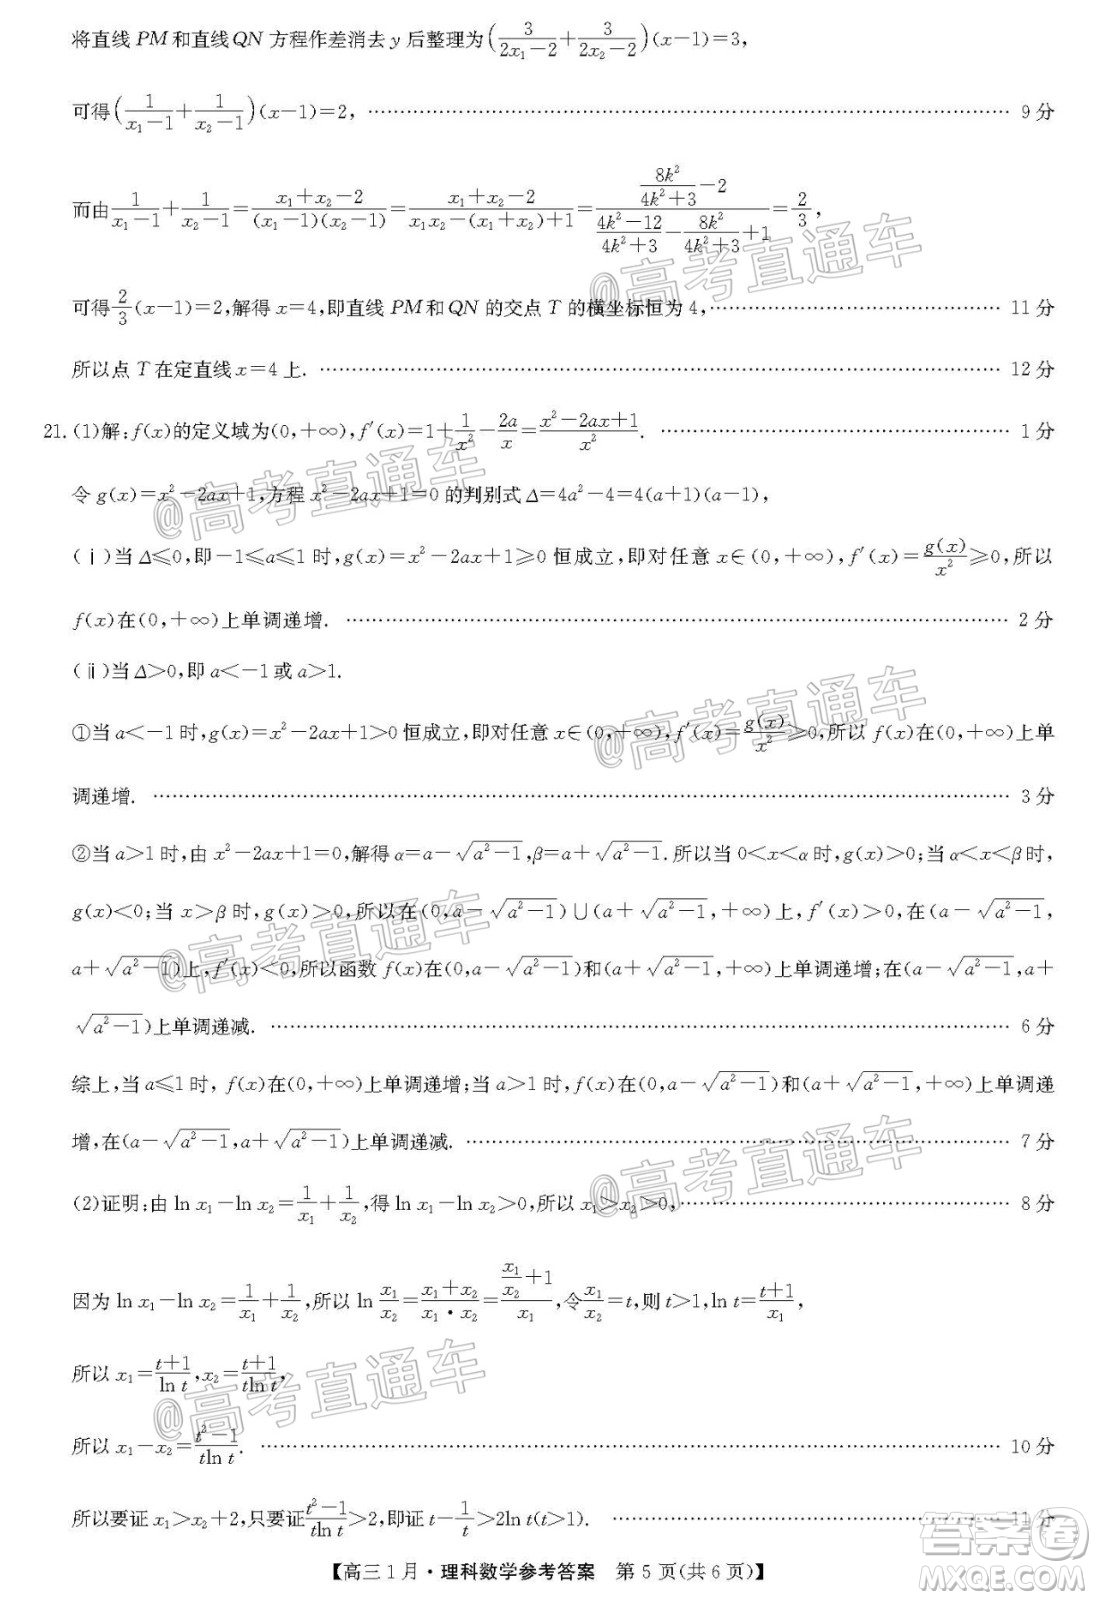 将直线 PM 和直线 QN 方程作差消去 y 后整理为(3/(2x₁-2)+3/(2x₂-2))(x-1)=3,
可得(1/(x₁-1)+1/(x₂-1))(x-1)=2, …… 9 分
而由1/(x₁-1)+1/(x₂-1)=(x₁+x₂-2)/((x₁-1)(x₂-1))=(x₁+x₂-2)/(x₁x₂-(x₁+x₂)+1)=(8k²/(4k²+3)-2)/((4k²-12)/(4k²+3)-8k²/(4k²+3)+1)=2/3,
可得2/3(x-1)=2,解得 x=4,即直线 PM 和 QN 的交点 T 的横坐标恒为 4, …… 11 分
所以点 T 在定直线 x=4 上. …… 12 分
21. (1)解:f(x)的定义域为(0,+∞),f′(x)=1+1/x²-2a/x=(x²-2ax+1)/x². …… 1 分
令 g(x)=x²-2ax+1,方程 x²-2ax+1=0 的判别式 Δ=4a²-4=4(a+1)(a-1),
(ⅰ)当 Δ≤0,即-1≤a≤1 时,g(x)=x²-2ax+1≥0 恒成立,即对任意 x∈(0,+∞),f′(x)=g(x)/x²≥0,所以
f(x)在(0,+∞)上单调递增. …… 2 分
(ⅱ)当 Δ>0,即 a<-1 或 a>1.
①当 a<-1 时,g(x)=x²-2ax+1>0 恒成立,即对任意 x∈(0,+∞),f′(x)=g(x)/x²≥0,所以 f(x)在(0,+∞)上单
调递增. …… 3 分
②当 a>1 时,由 x²-2ax+1=0,解得 α=a-√(a²-1),β=a+√(a²-1).所以当 0<x<α 时,g(x)>0;当 α<x<β 时,
g(x)<0;当 x>β 时,g(x)>0,所以在(0,a-√(a²-1))∪(a+√(a²-1),+∞)上,f′(x)>0,在(a-√(a²-1),
a+√(a²-1))上,f′(x)<0,所以函数 f(x)在(0,a-√(a²-1))和(a+√(a²-1),+∞)上单调递增;在(a-√(a²-1),a+
√(a²-1))上单调递减. …… 6 分
综上,当 a≤1 时, f(x)在(0,+∞)上单调递增;当 a>1 时,f(x)在(0,a-√(a²-1))和(a+√(a²-1),+∞)上单调递
增,在(a-√(a²-1),a+√(a²-1))上单调递减. …… 7 分
(2)证明:由 ln x₁-ln x₂=1/x₁+1/x₂,得 ln x₁-ln x₂>0,所以 x₁>x₂>0, …… 8 分
因为 ln x₁-ln x₂=1/x₁+1/x₂,所以 ln x₁/x₂=(x₁+x₂)/(x₁·x₂)=(x₁/x₂+1)/x₁,令x₁/x₂=t,则 t>1,ln t=(t+1)/x₁,
所以 x₁=(t+1)/ln t,x₂=(t+1)/(tln t),
所以 x₁-x₂=(t²-1)/(tln t). …… 10 分
所以要证 x₁>x₂+2,只要证(t²-1)/(tln t)>2,即证 t-1/t>2ln t(t>1). …… 11 分
【高三1月·理科数学参考答案 第 5 页(共 6 页)】
@高考直通车
@高考直通车
@高考直通车
@高考直通车
@高考直通车
@高考直通车
答案圈
MXQE.COM